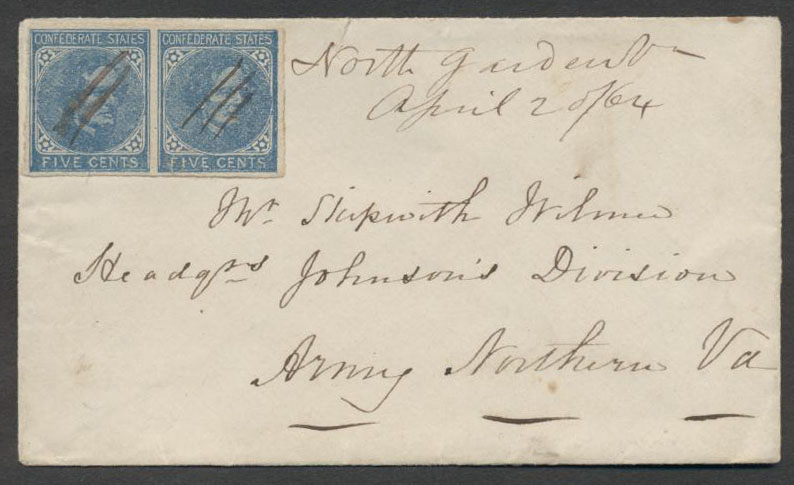 CONFEDERATE STATES CONFEDERATE STATES
FIVE CENTS FIVE CENTS
North Garden Va
April 20/64
Mr. Skipwith Wilmer
Headqrs Johnson's Division
Army Northern Va